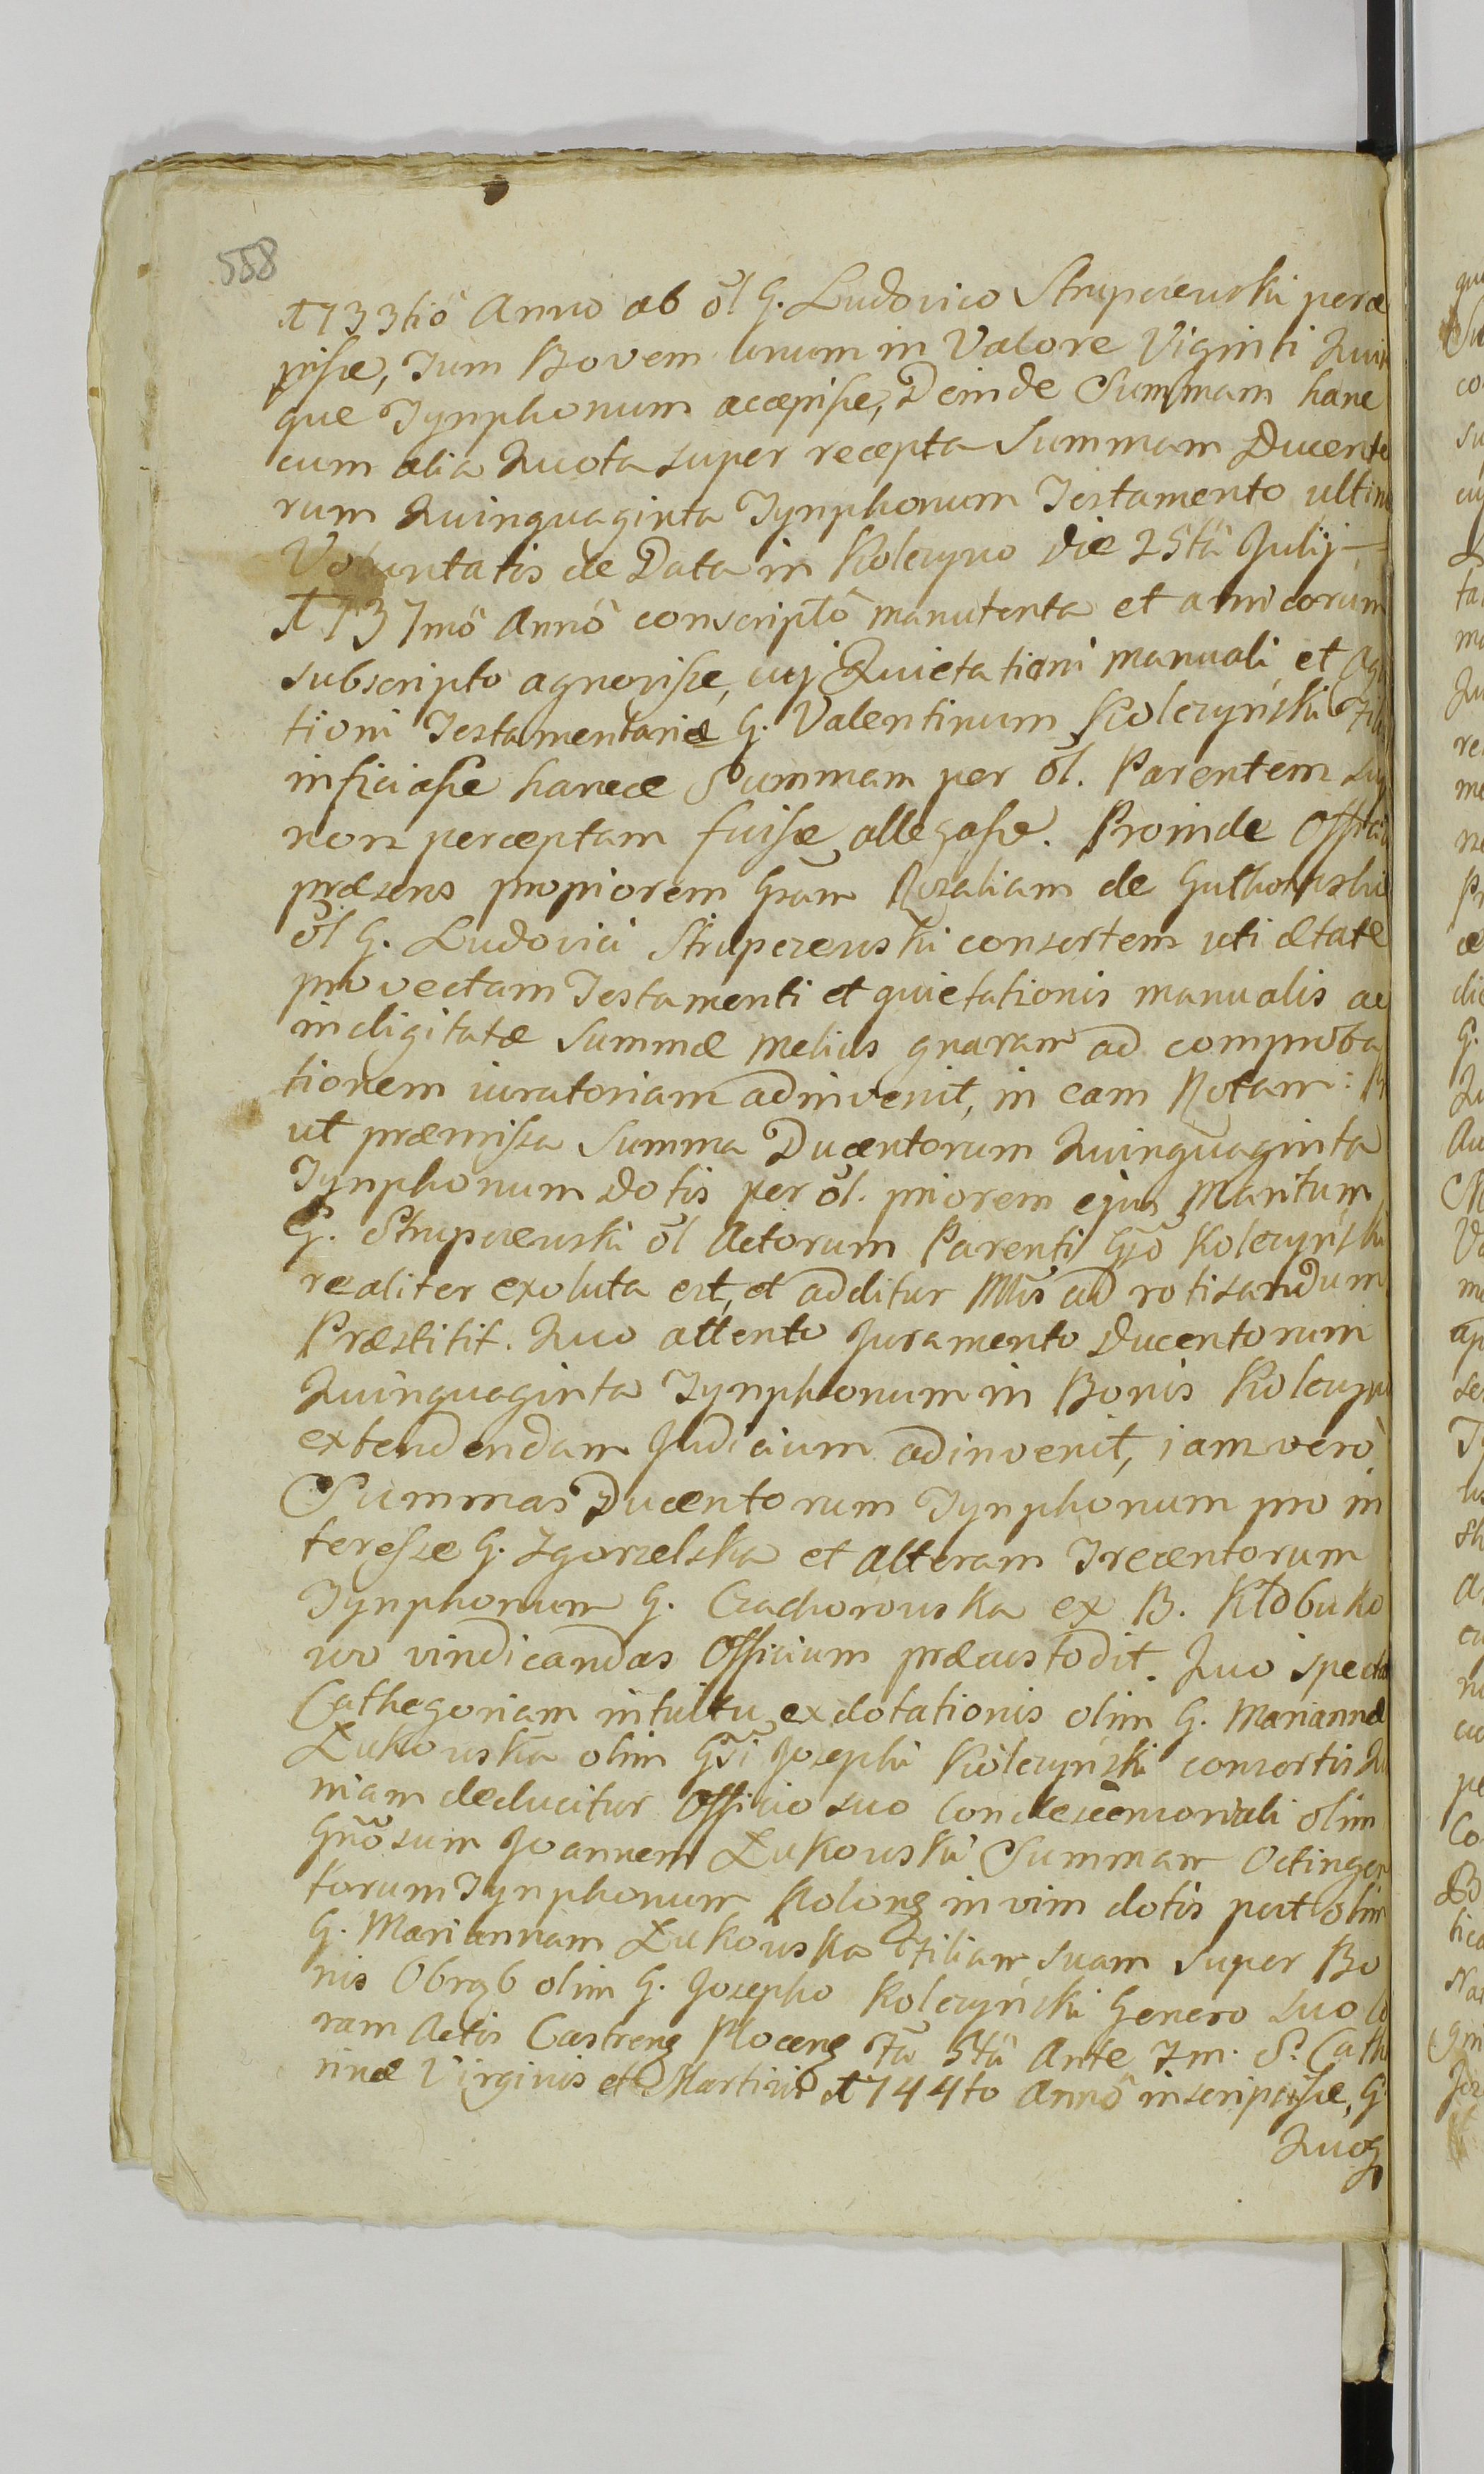 558
1733tiô Anno ab ōl G. Ludovico Strupczewski perce
pisse, Tum Bovem unum in Valore Viginti Quin
que Tynphonum accepisse, Deinde Summam hanc
cum alia Quota super recepta Summam Ducento
rum Quinquaginta Tynphonum Testamento ultimæ
Voluntatis de Data in Kolczyno die 25tâ Julij
1737mô Annô conscriptô manutenta et amicorum
subscripto agnovisse, cuj Quietationi manuali et
tioni Testamentariæ G. Valentinum Kolczyński
inficiasse hancce Summam per ōl. Parentem
non perceptam fuisse allegasse. Proinde
præsens propiorem Gsam Rozaliam de
ōl G. Ludovici Strupczewski consortem uti ætate
provectam Testamenti et quietationis manualis ac
indigitatæ Summæ melius gnaram ad comproba
tionem iuratoriam adinvenit, in eam Rotam:
ut præmissa Summa Ducentorum Quinquaginta
Tynphonum dotis per ōl. priorem ejus Maritum
G. Strupczewski ōl Actorum Parenti Gsō Kolczyński
realiter exoluta est, et additur Mtis ad rotisandum
Præstitit. Quo attento Juramento Ducentorum
Quinquaginta Tynphonum in Bonis Kolczyn
extendendam Judicium adinvenit, iam verò
Summas Ducentorum Tynphonum pro in
teresse G. Zgorzelska et alteram Trecentorum
Tynphonum G. Czachorowska ex B. Kłobuko
wo vindicandas Officium præcustodit. Quo specta
Cathegoriam intuitu exdotationis olim G. Mariannæ
Łukowska olim Gsi Josephi Kolczyński consortis Quo
niam deducitur Officio suo Condescensoriali olim
Gnōsum Joannem Łukowski Summam Octingen
torum Tynphonum Polonq in vim dotis post olim
G. Mariannam Łukowska Filiam suam super Bo
nis Obrąb olim G. Josepho Kolczyński Genero suo co
ram Actis Castrenq Plocenq Fâ 5tâ Ante F.m. S. Cathe
rinæ Virginis et Martiris 1744to Annô inscripsisse, G
Quoq